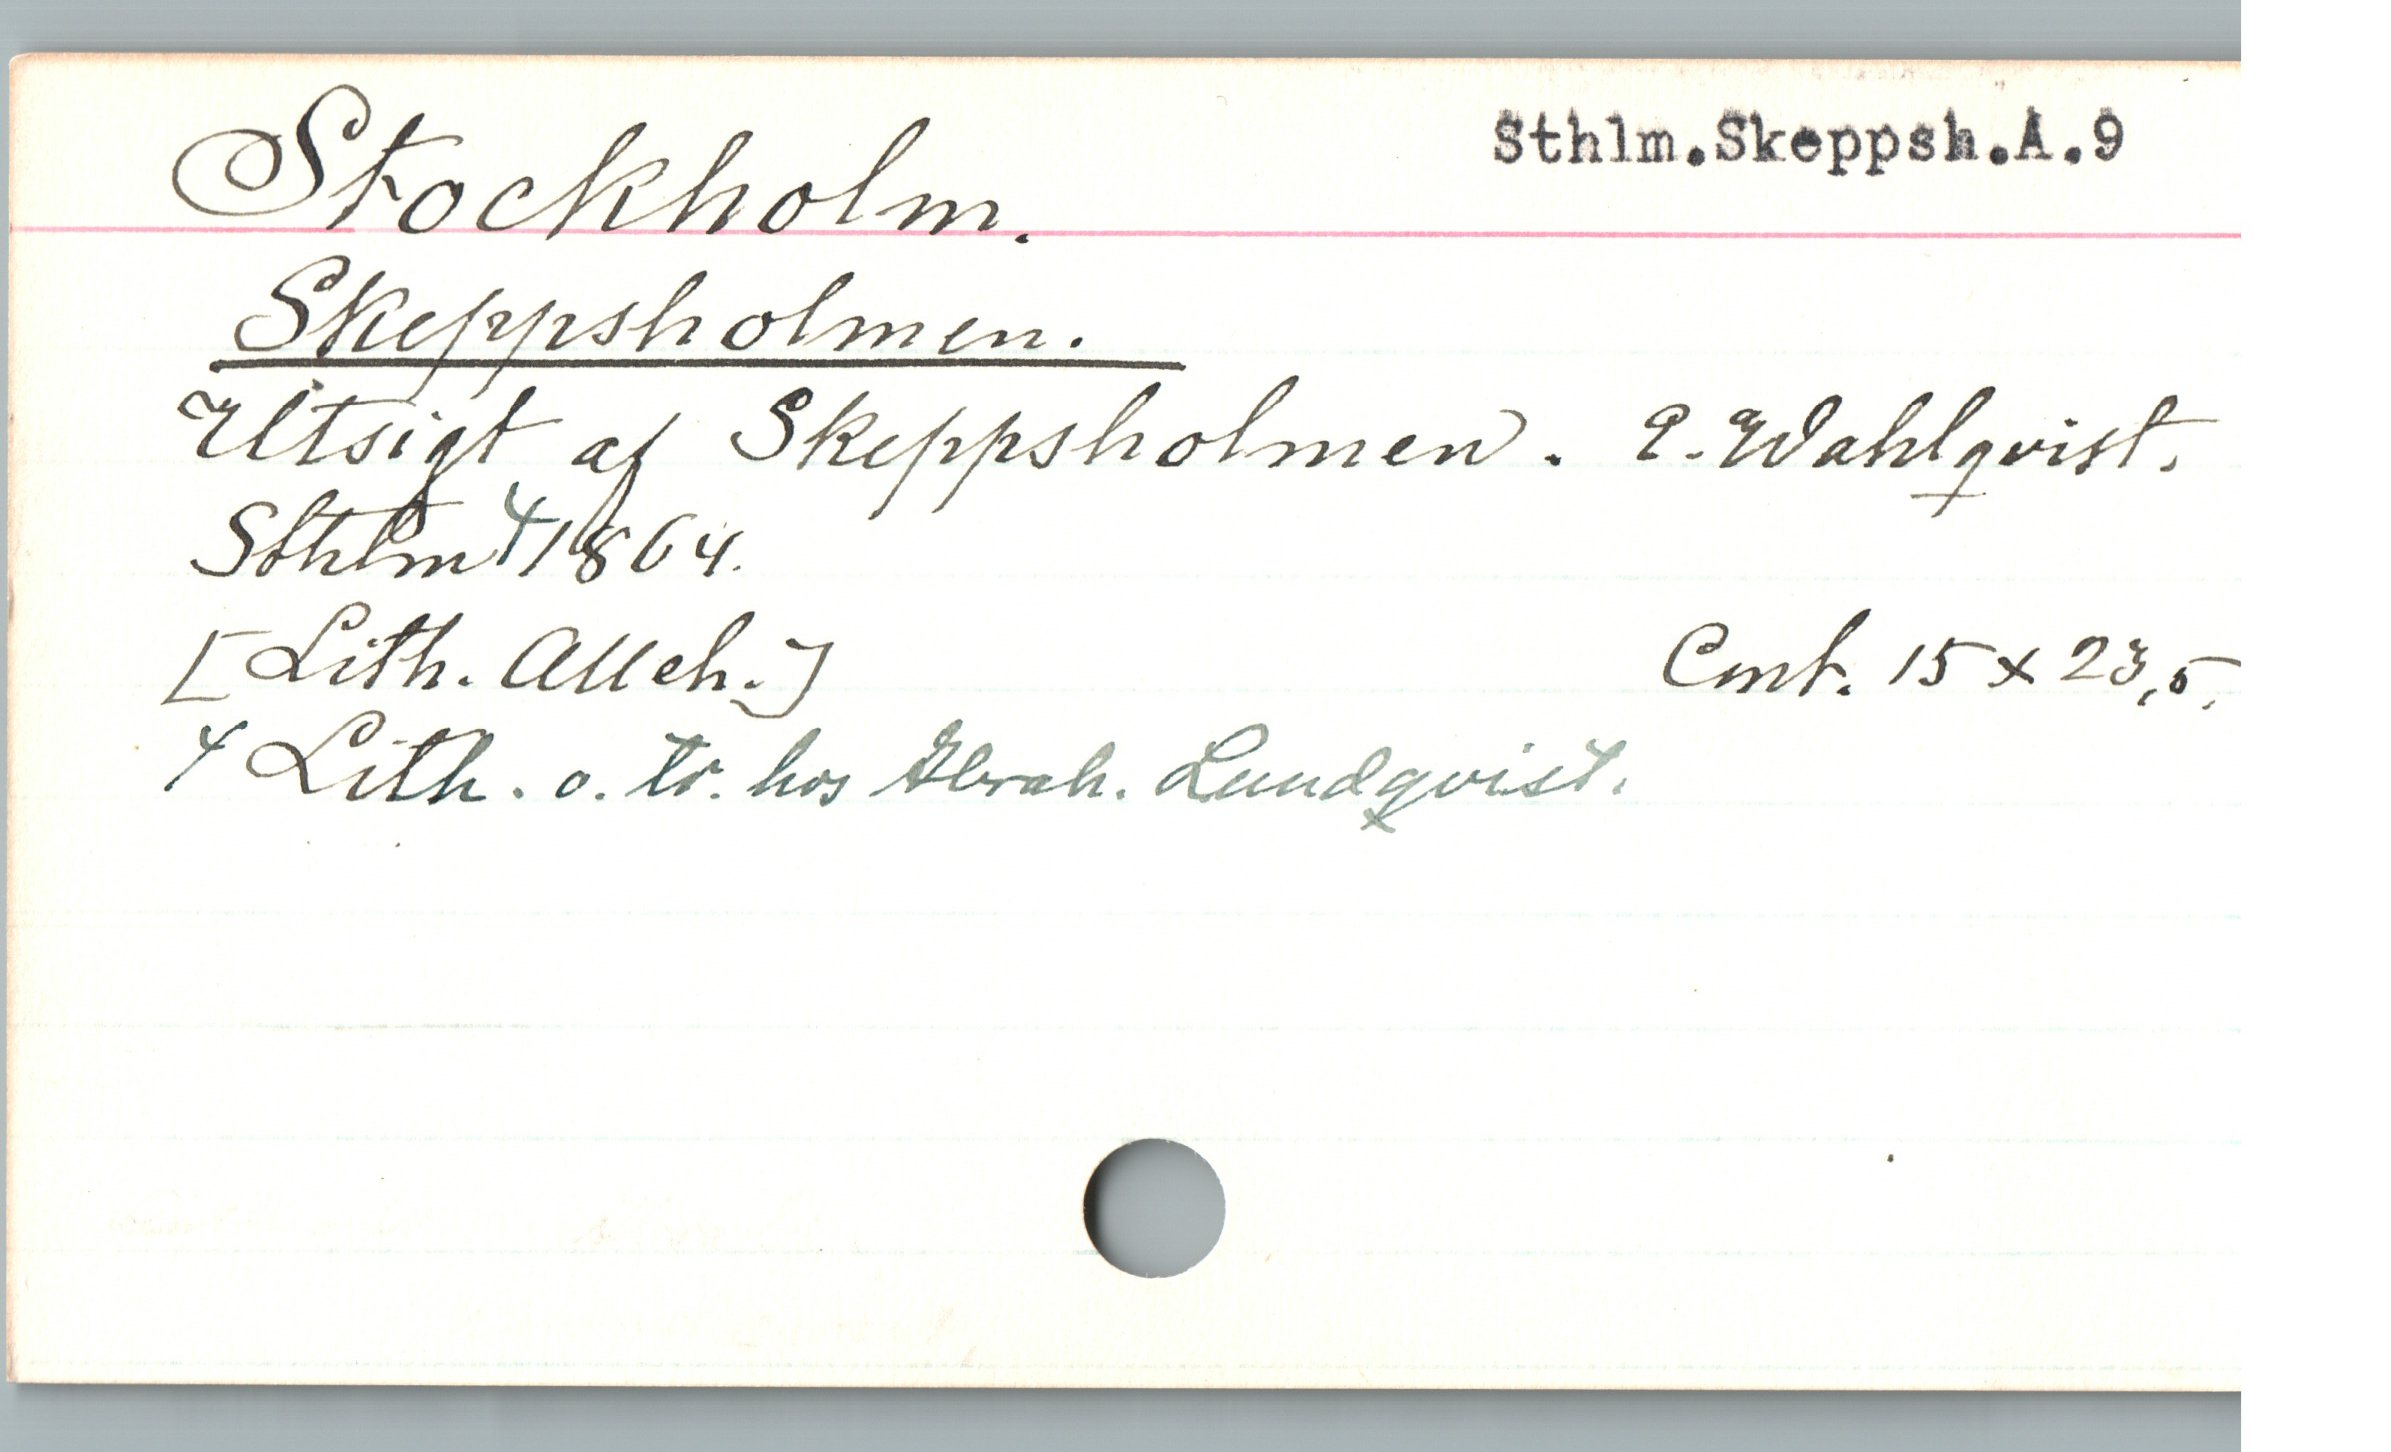 Sthlm.Skeppsh.A.9
Stockholm.
Skeppsholmen.
Utsigt af Skeppsholmen. E. Wahlqvist.
Sthlm 1864.
[Lith. Alleh.] Cmt. 15 x 23,5.
Lith. o. tr. hos Abrah. Lundqvist.